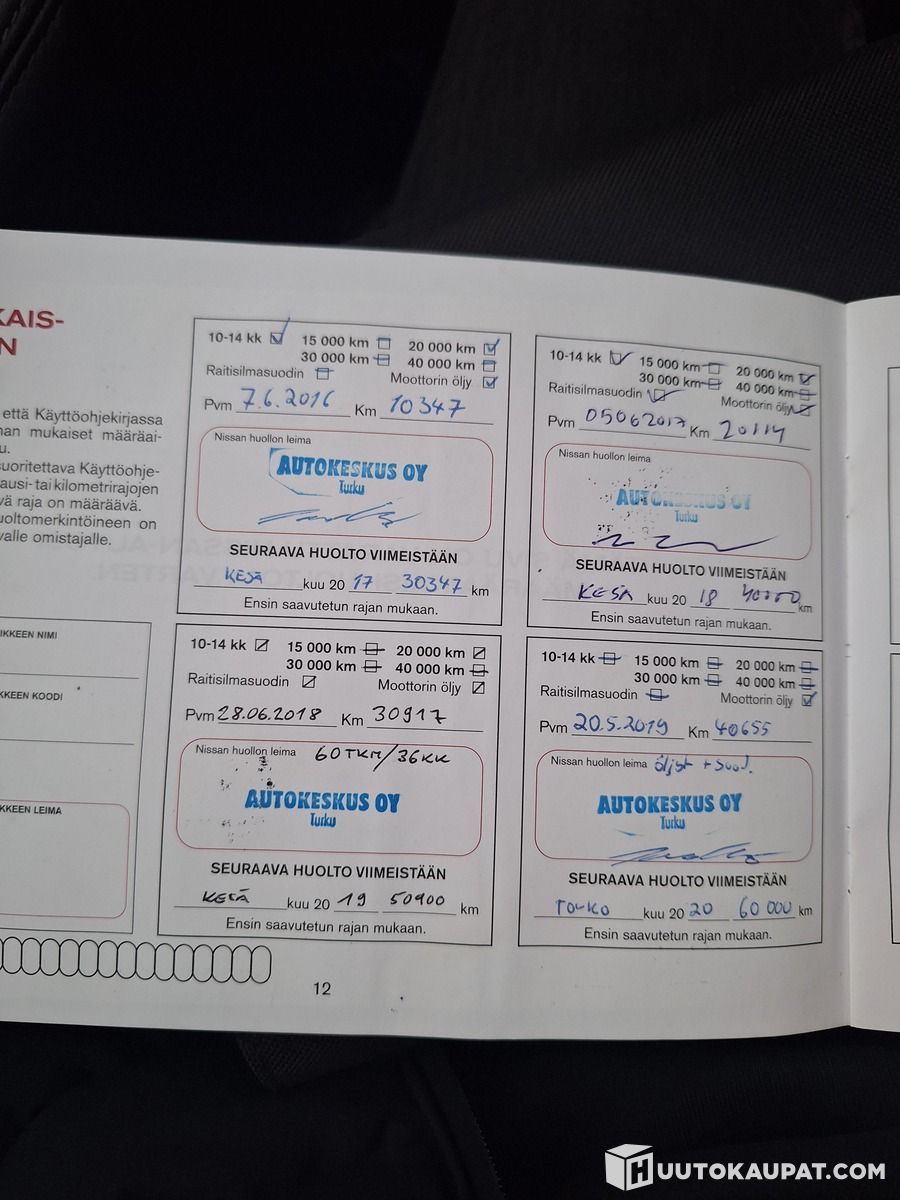 KAIS-
N
että Käyttöohjekirjassa
nan mukaiset määräai-
u.
suoritettava Käyttöohje-
ausi- tai kilometrirajojen
vä raja on määräävä.
uoltomerkintöineen on
valle omistajalle.
IKKEEN NIMI
KKEEN KOODI
KKEEN LEIMA
10-14 kk 15 000 km 20 000 km
30 000 km 40 000 km
Raitisilmasuodin Moottorin öljy
Pvm 7.6.2016 Km 10347
Nissan huollon leima
AUTOKESKUS OY
Turku
SEURAAVA HUOLTO VIIMEISTÄÄN
KESÄ kuu 20 17 30347 km
Ensin saavutetun rajan mukaan.
10-14 kk 15 000 km 20 000 km
30 000 km 40 000 km
Raitisilmasuodin Moottorin öljy
Pvm 05062017 Km 20114
Nissan huollon leima
AUTOKESKUS OY
Turku
SEURAAVA HUOLTO VIIMEISTÄÄN
KESÄ kuu 20 18 40000 km
Ensin saavutetun rajan mukaan.
10-14 kk 15 000 km 20 000 km
30 000 km 40 000 km
Raitisilmasuodin Moottorin öljy
Pvm 28.06.2018 Km 30917
Nissan huollon leima 60TKM/36KK
AUTOKESKUS OY
Turku
SEURAAVA HUOLTO VIIMEISTÄÄN
KESÄ kuu 20 19 50900 km
Ensin saavutetun rajan mukaan.
10-14 kk 15 000 km 20 000 km
30 000 km 40 000 km
Raitisilmasuodin Moottorin öljy
Pvm 20.5.2019 Km 40655
Nissan huollon leima öljyt + suod.
AUTOKESKUS OY
Turku
SEURAAVA HUOLTO VIIMEISTÄÄN
TOUKO kuu 20 20 60 000 km
Ensin saavutetun rajan mukaan.
12
HUUTOKAUPAT.COM